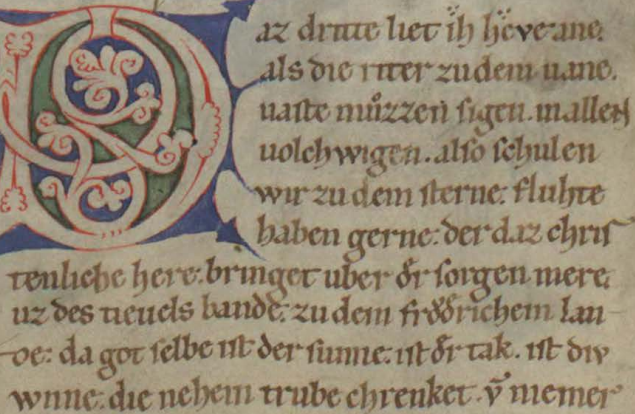 Daz dritte liet ih heve ane.
als die riter zu dem uane.
uaste muͦzzen sigen. in allen
uolchwigen. also schulen
wir zu dem sterne. fluhte
haben gerne. der daz chris
tenliche here. bringet uber dͤr sorgen mere.
uz des tieuels bande. zu dem froͤdrichem lan
de. da got selbe ist der sunne. ist dͤr tak. ist div
wnne. die nehein trube chrenket. vn̄ niemer